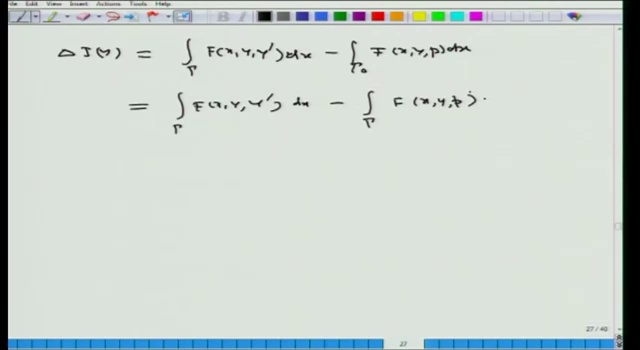 Edit View Insert Actions Tools Help
B
Δ J(y) = ∫_Γ F(x, y, y') dx − ∫_Γ₀ F(x, y, p) dx
= ∫_Γ F(x, y, y') dx − ∫_Γ F(x, y, p)
27 / 40
27